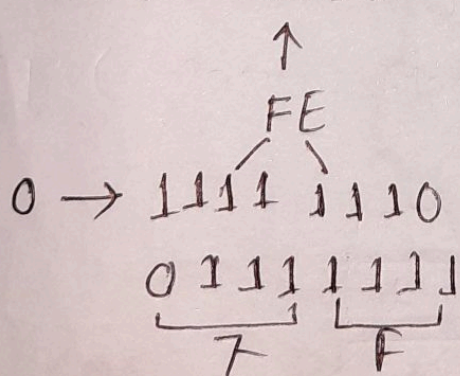 ↑
FE
0 → 1111 1110
0111 1111
7 F